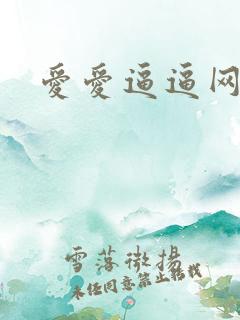 愛愛逼逼网
雪落微揚
未经同意禁止转载